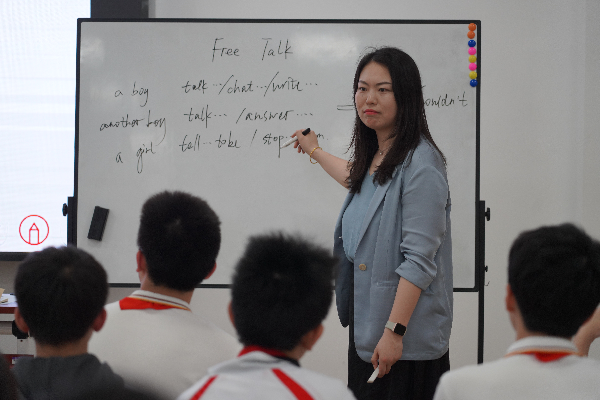 Free Talk
a boy talk.../chat.../write...
another boy talk... /answer....
a girl tell...take / stop...